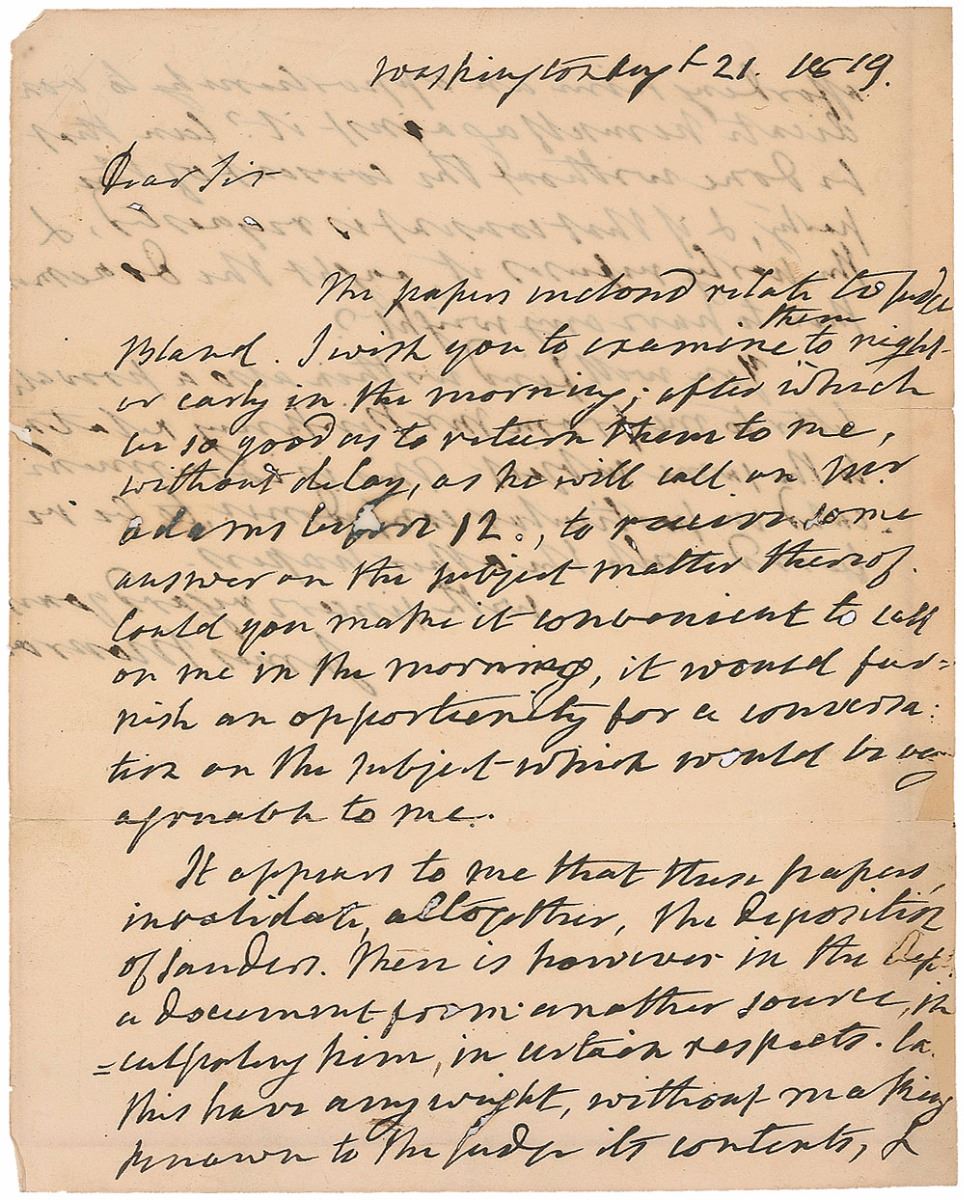 Washington Augt 21. 1819.
Dear Sir
The papers inclosed relate to Judge
them
Bland. I wish you to examine to night
or early in the morning; after which
be so good as to return them to me,
without delay, as he will call on Mr
Adams before 12., to receive some
answer on the subject matter thereof.
Could you make it convenient to call
on me in the morning, it would fur=
nish an opportunity for a conversa:
tion on the subject which would be very
agreeable to me.
It appears to me that these papers,
invalidate, altogether, the deposition
of Sanders. There is however in the Dept.
a document from another source, in
=culpating him, in certain respects. Can
this have any weight, without making
known to the Judge its contents, &